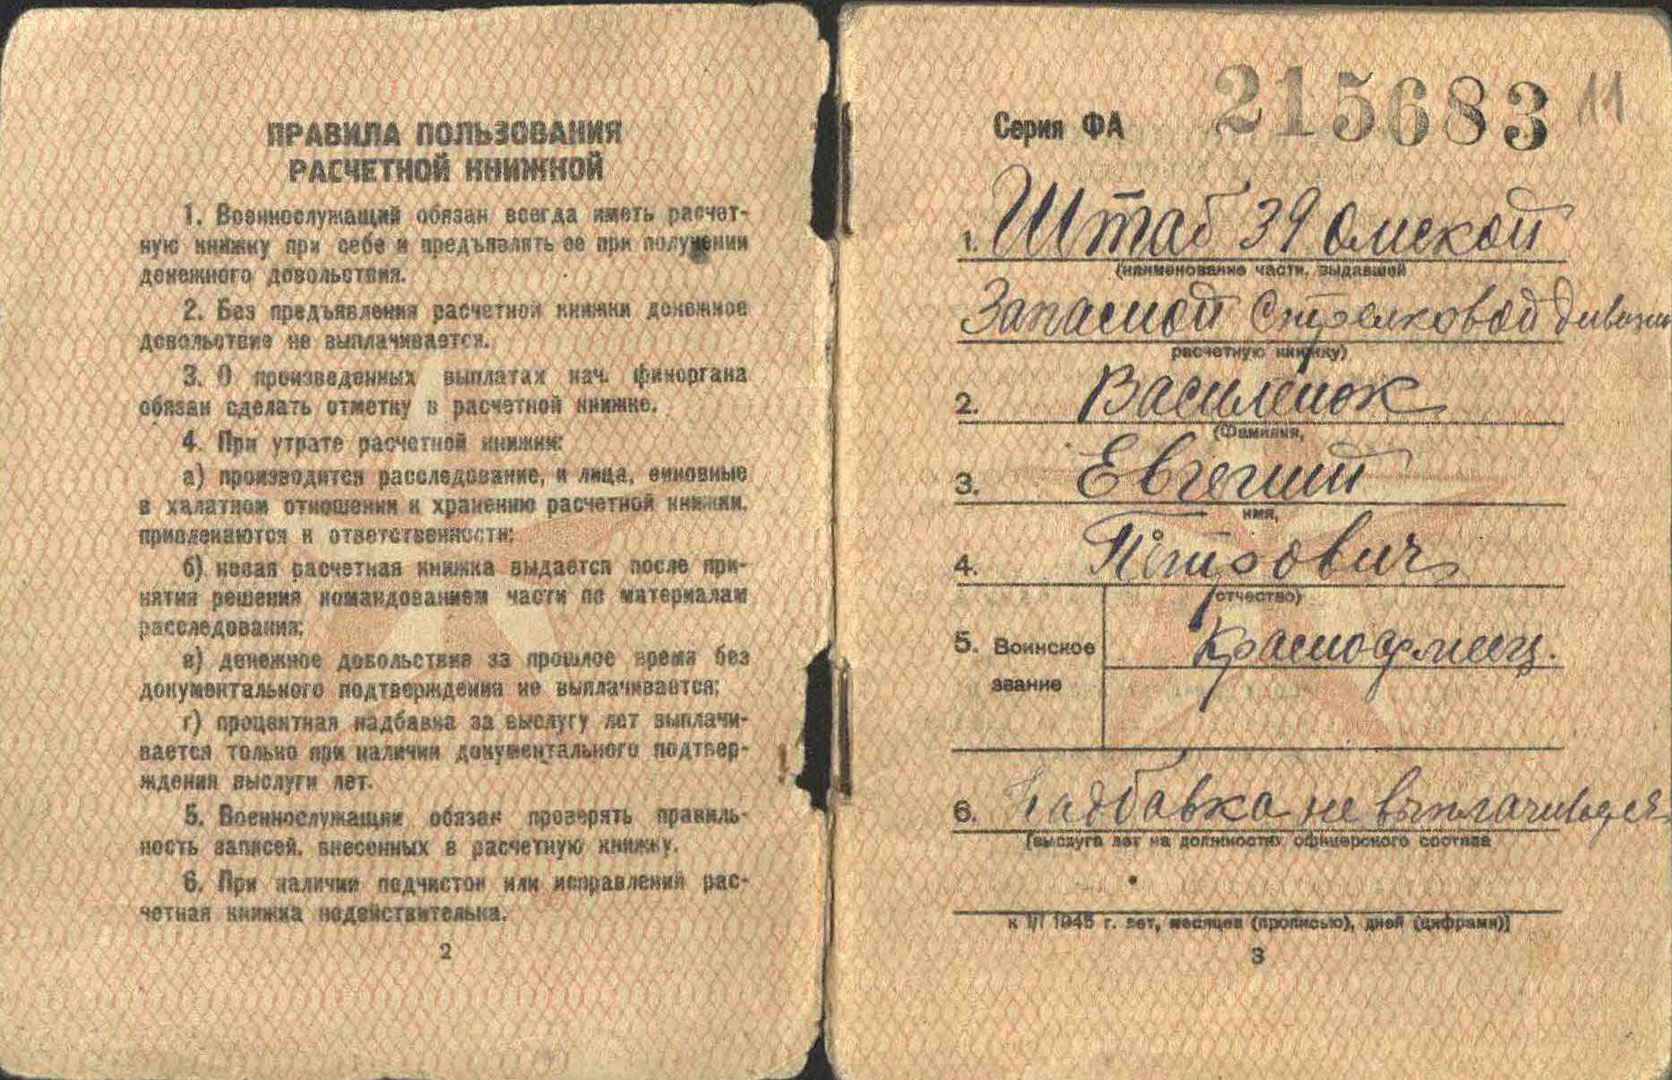 ПРАВИЛА ПОЛЬЗОВАНИЯ
РАСЧЕТНОЙ КНИЖКОЙ
1. Военнослужащий обязан всегда иметь расчет-
ную книжку при себе и предъявлять ее при получении
денежного довольствия.
2. Без предъявления расчетной книжки денежное
довольствие не выплачивается.
3. О произведенных выплатах нач. финоргана
обязан сделать отметку в расчетной книжке.
4. При утрате расчетной книжки:
а) производится расследование, и лица, виновные
в халатном отношении к хранению расчетной книжки,
привлекаются к ответственности;
б) новая расчетная книжка выдается после при-
нятия решения командованием части по материалам
расследования;
в) денежное довольствие за прошлое время без
документального подтверждения не выплачивается;
г) процентная надбавка за выслугу лет выплачи-
вается только при наличии документального подтвер-
ждения выслуги лет.
5. Военнослужащий обязан проверять правиль-
ность записей, внесенных в расчетную книжку.
6. При наличии подчисток или исправлений рас-
четная книжка недействительна.
2
Серия ФА 215683 11
1. Штаб 39 Омской
(наименование части, выдавшей
Запасной Стрелковой дивизии
расчетную книжку)
2. Василенок
(Фамилия,
3. Евгений
имя,
4. Петрович
отчество)
5. Воинское звание Красноармеец.
6. Надбавка не выплачивается
[выслуга лет на должностях офицерского состава
к 1/I 1945 г. лет, месяцев (прописью), дней (цифрами)]
3